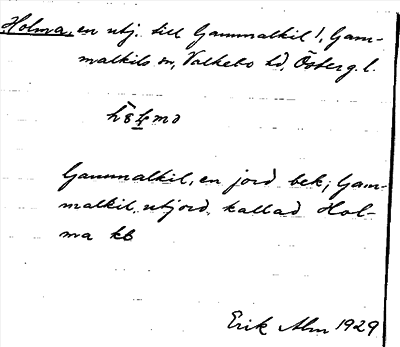 Holma, en utj. till Gammalkil 1, Gam-
malkils sn, Valkebo hd, Österg. l.
Gammalkil, en jord bek; Gam-
malkil, utjord, kallad Hol-
ma kb
Erik Alm 1929